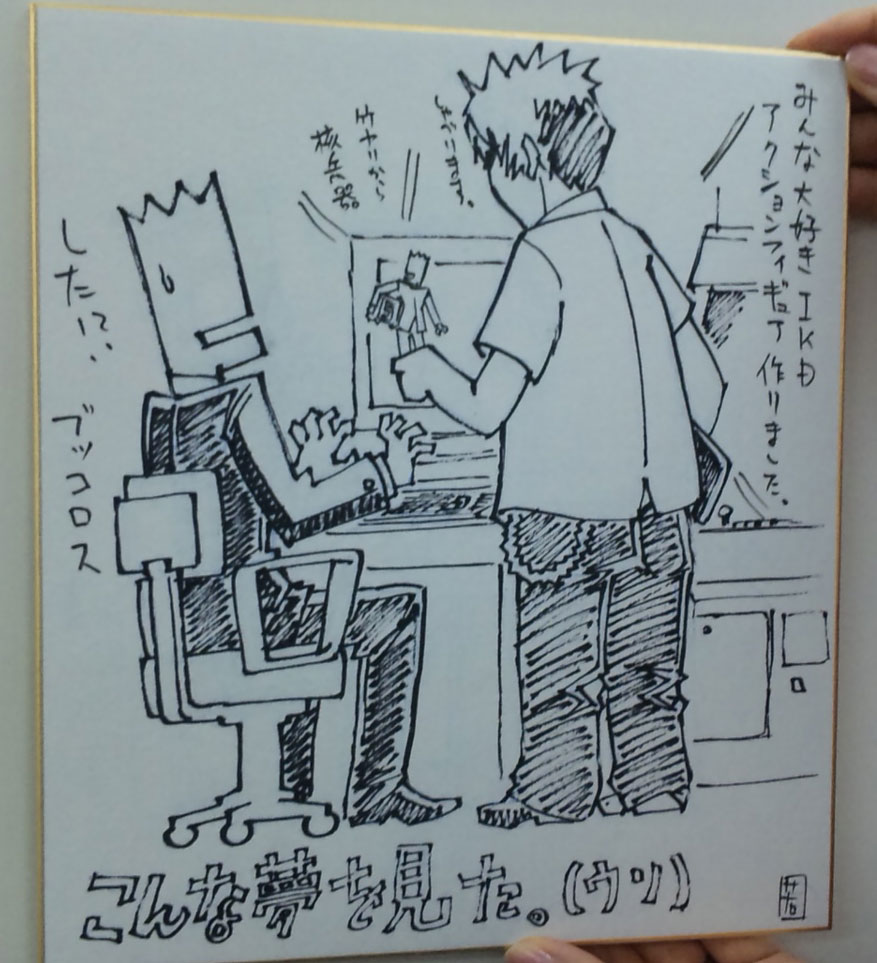 みんな大好きIKD
アクションフィギュア作りました。
竹ヤリから
核兵器
したに、、
ブッコロス
こんな夢を見た。(ウソ)